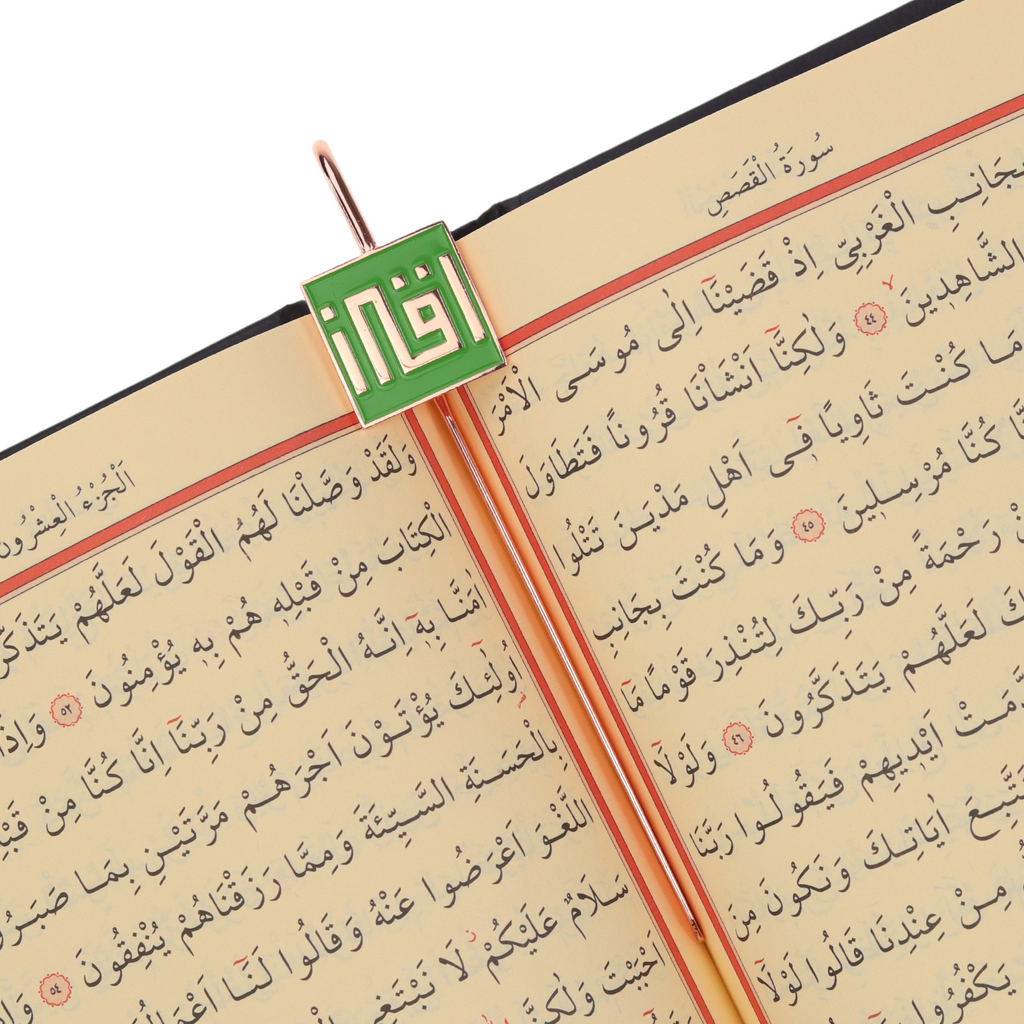 سُورَةُ الْقَصَصِ
بِجَانِبِ الْغَرْبِيِّ اِذْ قَضَيْنَٓا اِلٰى مُوسَى الْاَمْرَ
الشَّاهِدِينَ ٤٤ وَلٰكِنَّٓا اَنْشَاْنَا قُرُونًا فَتَطَاوَلَ
مَا كُنْتَ ثَاوِيًا فٖٓى اَهْلِ مَدْيَنَ تَتْلُوا
كُنَّا مُرْسِلِينَ ٤٥ وَمَا كُنْتَ بِجَانِبِ
رَحْمَةً مِنْ رَبِّكَ لِتُنْذِرَ قَوْمًا مَٓا
لَعَلَّهُمْ يَتَذَكَّرُونَ ٤٦ وَلَوْلَٓا
اَيْدِيهِمْ فَيَقُولُوا رَبَّنَا
اٰيَاتِكَ وَنَكُونَ مِنَ
مِنْ عِنْدِنَا قَالُوا لَوْلَٓا
يَكْفُرُوا
اَلْجُزْءُ الْعِشْرُونَ
وَلَقَدْ وَصَّلْنَا لَهُمُ الْقَوْلَ لَعَلَّهُمْ
الْكِتَابَ مِنْ قَبْلِهٖ هُمْ بِهٖ يُؤْمِنُونَ ٥٢ وَاِذَا
اٰمَنَّا بِهٖٓ اِنَّهُ الْحَقُّ مِنْ رَبِّنَٓا اِنَّا كُنَّا مِنْ
اُولٰٓئِكَ يُؤْتَوْنَ اَجْرَهُمْ مَرَّتَيْنِ بِمَا
بِالْحَسَنَةِ السَّيِّئَةَ وَمِمَّا رَزَقْنَاهُمْ يُنْفِقُونَ ٥٤
اللَّغْوَ اَعْرَضُوا عَنْهُ وَقَالُوا لَنَٓا
سَلَامٌ عَلَيْكُمْ لَا نَبْتَغِي
اَحْبَبْتَ وَلٰكِنَّ